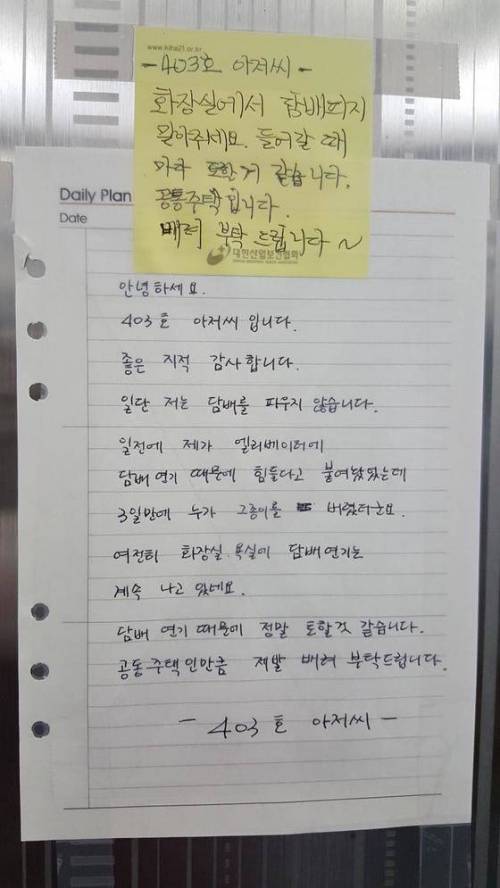 www.kiha21.or.kr
-403호 아저씨-
화장실에서 담배피지
말아주세요. 들어갈 때
마다 토할거 같습니다.
공통주택입니다.
배려 부탁드립니다~
대한산업보건협회
Daily Plan
Date
안녕하세요.
403호 아저씨입니다.
좋은 지적 감사합니다.
일단 저는 담배를 파우지 않습니다.
일전에 제가 엘리베이터에
담배 연기 때문에 힘들다고 붙여놨었는데
3일만에 누가 그종이를 버렸더군요.
여전히 화장실.욕실에 담배연기는
계속 나고 있네요.
담배 연기 때문에 정말 토할것 같습니다.
공동주택인만큼 제발 배려 부탁드립니다.
- 403호 아저씨 -